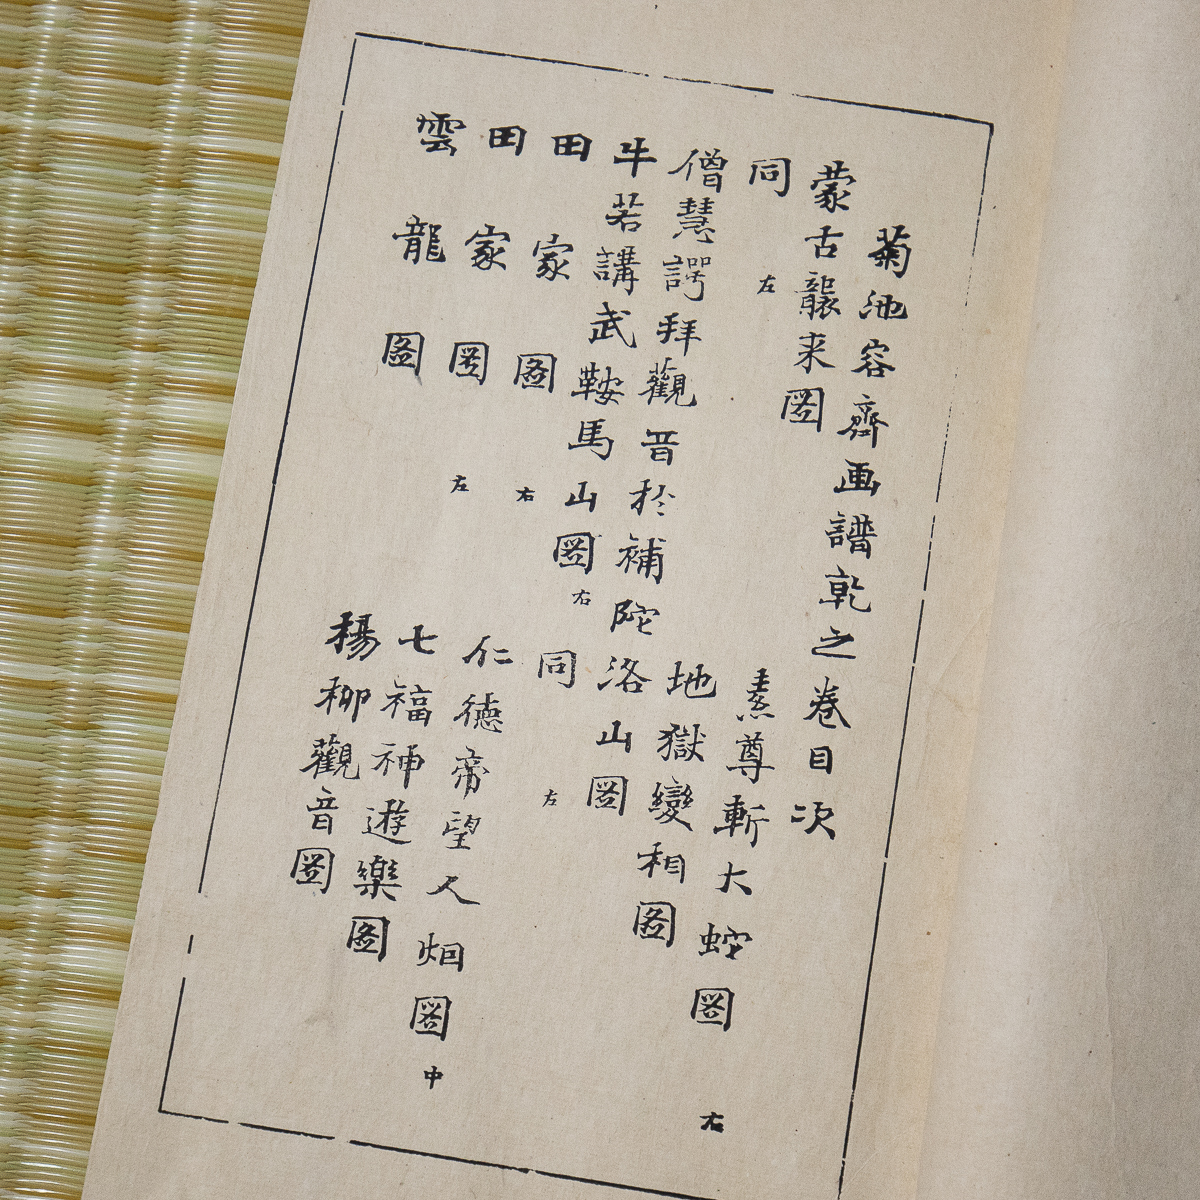 菊池容齋画譜乾之巻目次
蒙古襲来圖 素尊斬大蛇圖 右
同 左 地獄變相圖
僧慧諤拜觀音於補陀洛山圖
牛若講武鞍馬山圖 右 同 左
田家圖 右 仁徳帝望人烟圖 中
田家圖 左 七福神遊樂圖
雲龍圖 楊柳觀音圖